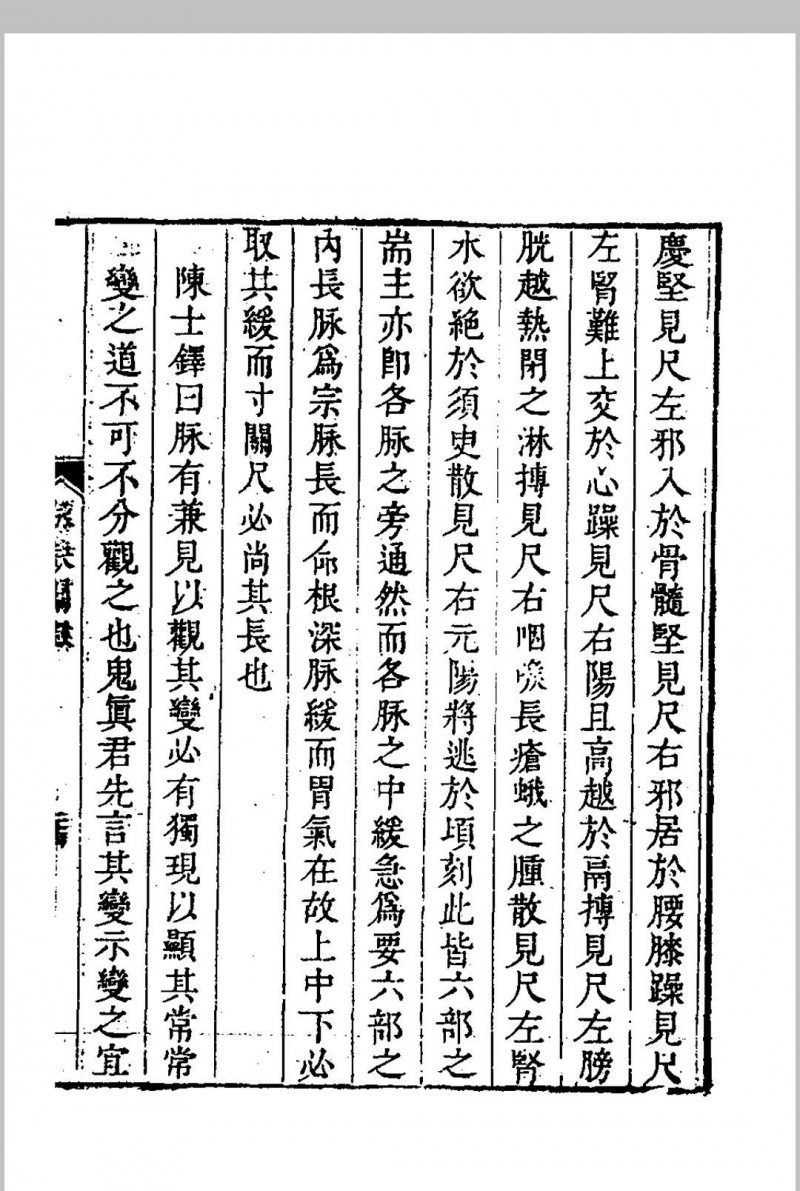 慶堅見尺左邪入於骨髓堅見尺右邪居於腰膝躁見尺
左腎難上交於心躁見尺右陽且高越於鬲摶見尺左膀
胱越熱閉之淋摶見尺右咽喉長瘡蛾之腫散見尺左腎
水欲絶於須臾散見尺右元陽將逃於頃刻此皆六部之
耑主亦卽各脉之旁通然而各脉之中緩急爲要六部之
內長脉爲宗脉長而命根深脉緩而胃氣在故上中下必
取其緩而寸關尺必尚其長也
陳士鐸曰脉有兼見以觀其變必有獨現以顯其常常
變之道不可不分觀之也鬼眞君先言其變示變之宜